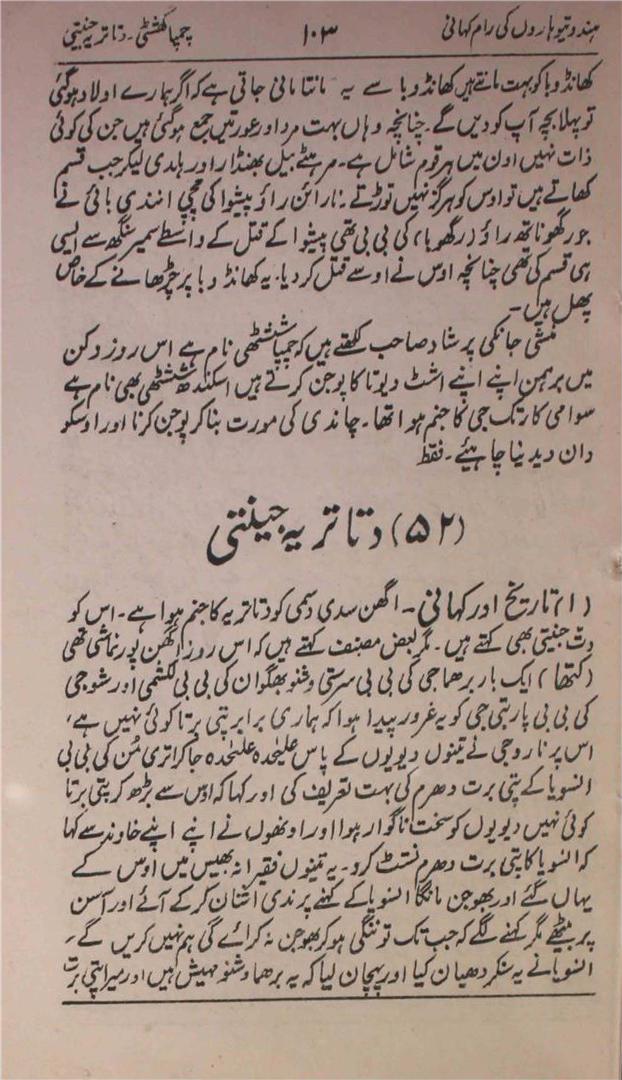 ہندو تیوہاروں کی رام کہانی
۱۰۳
چمپا گھشٹی۔ دتاتریہ جینتی
کھانڈوبا کو بہت مانتے ہیں کھانڈوبا سے یہ مانتا مانی جاتی ہے کہ اگر ہمارے اولاد ہوگئی
تو پہلا بچہ آپ کو دیں گے۔ چنانچہ وہاں بہت مرد اور عورتیں جمع ہوگئی ہیں جن کی کوئی
ذات نہیں اون میں ہر قوم شامل ہے۔ مرہٹے بیل بھنڈار اور ہلدی لیکر جب قسم
کھاتے ہیں تو اوس کو ہرگز نہیں توڑتے۔ نارائن راؤ پیشوا کی چچی انندی بائی نے
جو رگھوناتھ راؤ (رگھوبا) کی بی بی تھی پیشوا کے قتل کے واسطے سمیر سنگھ سے ایسی
ہی قسم کی تھی چنانچہ اوس نے اوسے قتل کر دیا۔ یہ کھانڈوبا پر چڑھانے کے خاص
پھل ہیں۔
منشی جانکی پرشاد صاحب لکھتے ہیں کہ چمپا ششٹھی نام ہے اس روز دکن
میں برہمن اپنے اپنے اشٹ دیوتا کا پوجن کرتے ہیں اسکندھ ششٹھی بھی نام ہے
سوامی کارتک جی کا جنم ہوا تھا۔ چاندی کی مورت بنا کر پوجن کرنا اور اوسکو
دان دیدینا چاہیئے۔ فقط
(۵۲) دتاتریہ جینتی
(۱) تاریخ اور کہانی۔ اگھن سدی دسمی کو دتاتریہ کا جنم ہوا ہے۔ اس کو
دت جنیتی بھی کہتے ہیں۔ مگر بعض مصنف کہتے ہیں کہ اس روز اگھن پورنماشی تھی
(کتھا) ایک بار برھما جی کی بی بی سرستی وشنو بھگوان کی بی بی لکشمی اور شوجی
کی بی بی پاربتی جی کو یہ غرور پیدا ہوا کہ ہماری برابر پتی برتا کوئی نہیں ہے،
اس پر ناروجی نے تینوں دیویوں کے پاس علیحدہ علیحدہ جاکر اتری مُن کی بی بی
انسویا کے پتی برت دھرم کی بہت تعریف کی اور کہا کہ اوس سے بڑھ کر پتی برتا
کوئی نہیں دیویوں کو سخت ناگوار ہوا اور اونھوں نے اپنے اپنے خاوند سے کہا
کہ انسویا کا پتی برت دھرم نسٹ کرو۔ یہ تینوں فقیرانہ بھیس میں اوس کے
یہاں گئے اور بھوجن مانگا انسویا کے کہنے پر ندی اشنان کر کے آئے اور آسن
پر بیٹھے مگر کہنے لگے کہ جب تک تو ننگی ہوکر بھوجن نہ کرائے گی ہم نہیں کریں گے۔
انسویا نے یہ سنکر دھیان کیا اور پہچان لیا کہ یہ برھما وشنو مہیش ہیں اور میرا پتی برت